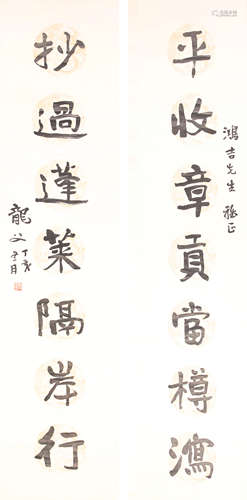 鴻吉先生 雅正
平收章貢當樽瀉
抄過蓬萊隔岸行
龍父 丁亥